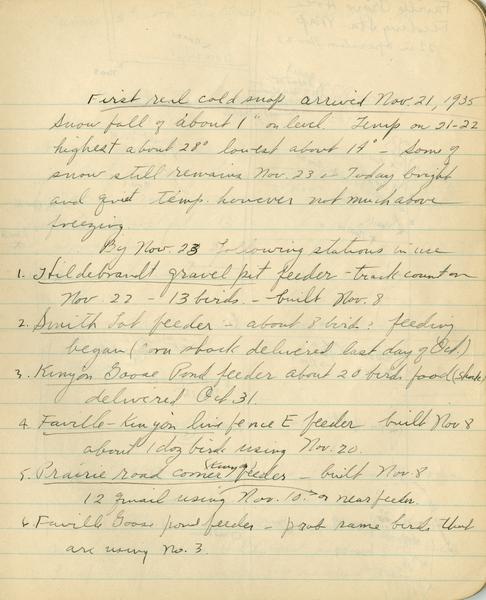 First real cold snap arrived Nov. 21, 1935
Snow fall of about 1" on level. Temp on 21-22
highest about 28° lowest about 14° - Some of
snow still remains Nov. 23 - Today bright
and quiet temp. however not much above
freezing.
By Nov. 23 following stations in use
1. Hildebrandt gravel pit feeder - track count on
Nov. 22 - 13 birds. - built Nov. 8
2. Smith Lot feeder - about 8 birds; feeding
began (Corn shock delivered last day of Oct.)
3. Kinyon Goose Pond feeder about 20 birds food (shocks)
delivered Oct 31.
4. Faville-Kinyon line fence E feeder built Nov 8
about 1 doz birds using Nov. 20.
5. Prairie road corner feeder - built Nov. 8
12 Quail using Nov. 10. or near feeder.
6. Faville Goose pond feeder - prob same birds that
are using No. 3.